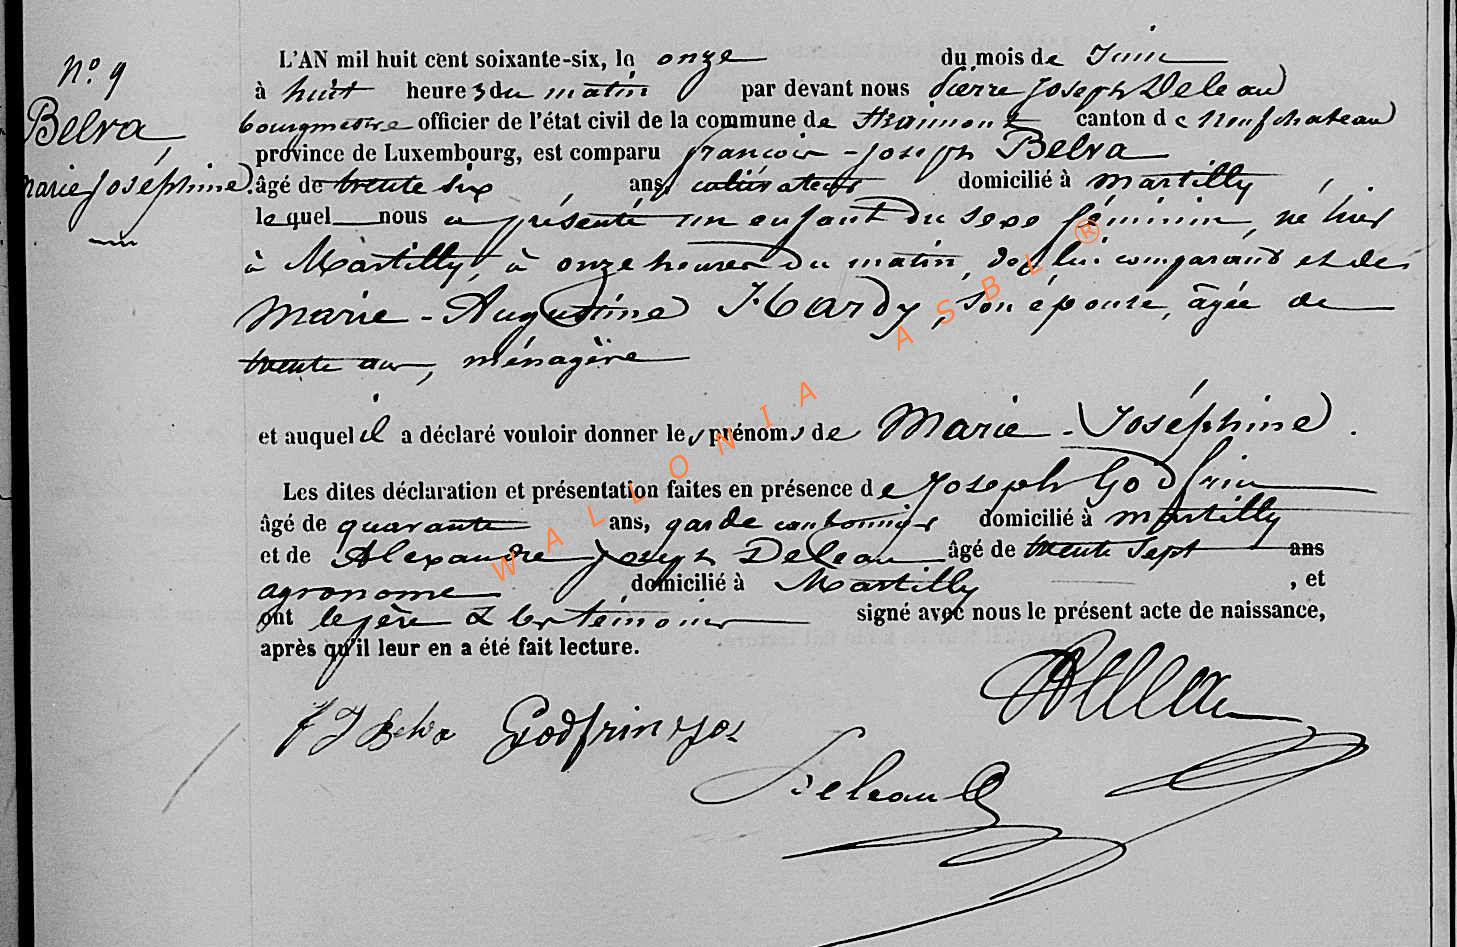 N.° 9
Belva,
Marie Joséphine.
L'AN mil huit cent soixante-six, le onze du mois de Juin
à huit heures du matin par devant nous Pierre Joseph Deleau
bourgmestre officier de l'état civil de la commune de Straimont canton de Neufchateau
province de Luxembourg, est comparu françois-Joseph Belva
âgé de trente six ans, cultivateur domicilié à Martilly
lequel nous a présenté un enfant du sexe féminin, né hier
à Martilly, à onze heures du matin, de lui comparant et de
Marie-Augustine Hardy, son épouse, âgée de
trente ans, ménagère
et auquel il a déclaré vouloir donner les prénoms de Marie-Joséphine.
Les dites déclaration et présentation faites en présence de Joseph Godfrin
âgé de quarante ans, garde domicilié à Martilly
et de Alexandre Joseph Deleau âgé de trente sept ans
agronome domicilié à Martilly, et
ont le père & les témoins signé avec nous le présent acte de naissance,
après qu'il leur en a été fait lecture.
F J Belva Godfrin Jos
Deleau
WALLONIA ASBL ®